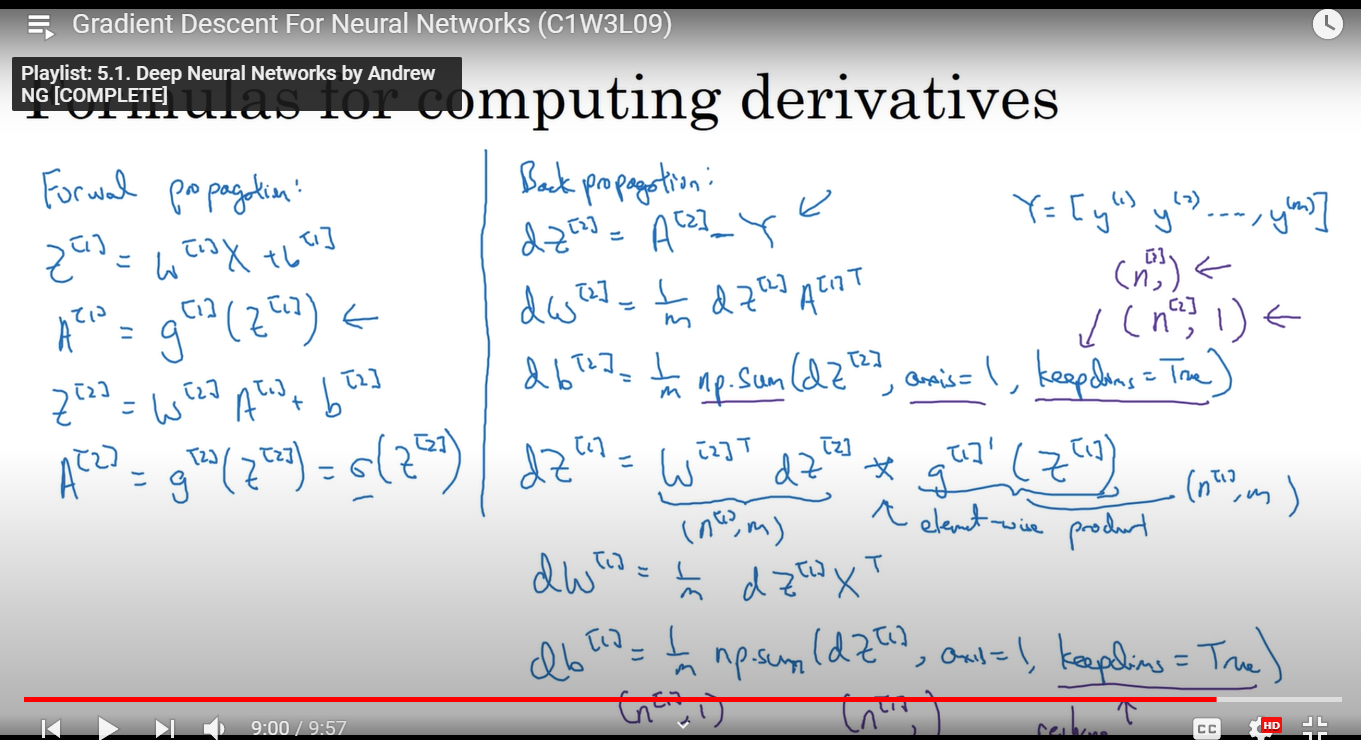 Gradient Descent For Neural Networks (C1W3L09)
Playlist: 5.1. Deep Neural Networks by Andrew
NG [COMPLETE]
Formulas for computing derivatives
Forwal propagation:
Z^[1] = W^[1] X + b^[1]
A^[1] = g^[1](Z^[1]) ←
Z^[2] = W^[2] A^[1] + b^[2]
A^[2] = g^[2](Z^[2]) = σ(Z^[2])
Back propagation:
dZ^[2] = A^[2] - Y ↙
dW^[2] = 1/m dZ^[2] A^[1]T
db^[2] = 1/m np.sum(dZ^[2], axis=1, keepdims=True)
dZ^[1] = W^[2]T dZ^[2] * g^[1]'(Z^[1])
(n^[1], m) ↑ element-wise product (n^[1], m)
dW^[1] = 1/m dZ^[1] X^T
db^[1] = 1/m np.sum(dZ^[1], axis=1, keepdims=True)
(n^[1], 1) (n^[1],) ↑
Y = [y^(1) y^(2) ...., y^(m)]
(n^[2],) ←
↙ (n^[2], 1) ←
9:00 / 9:57
CC
HD